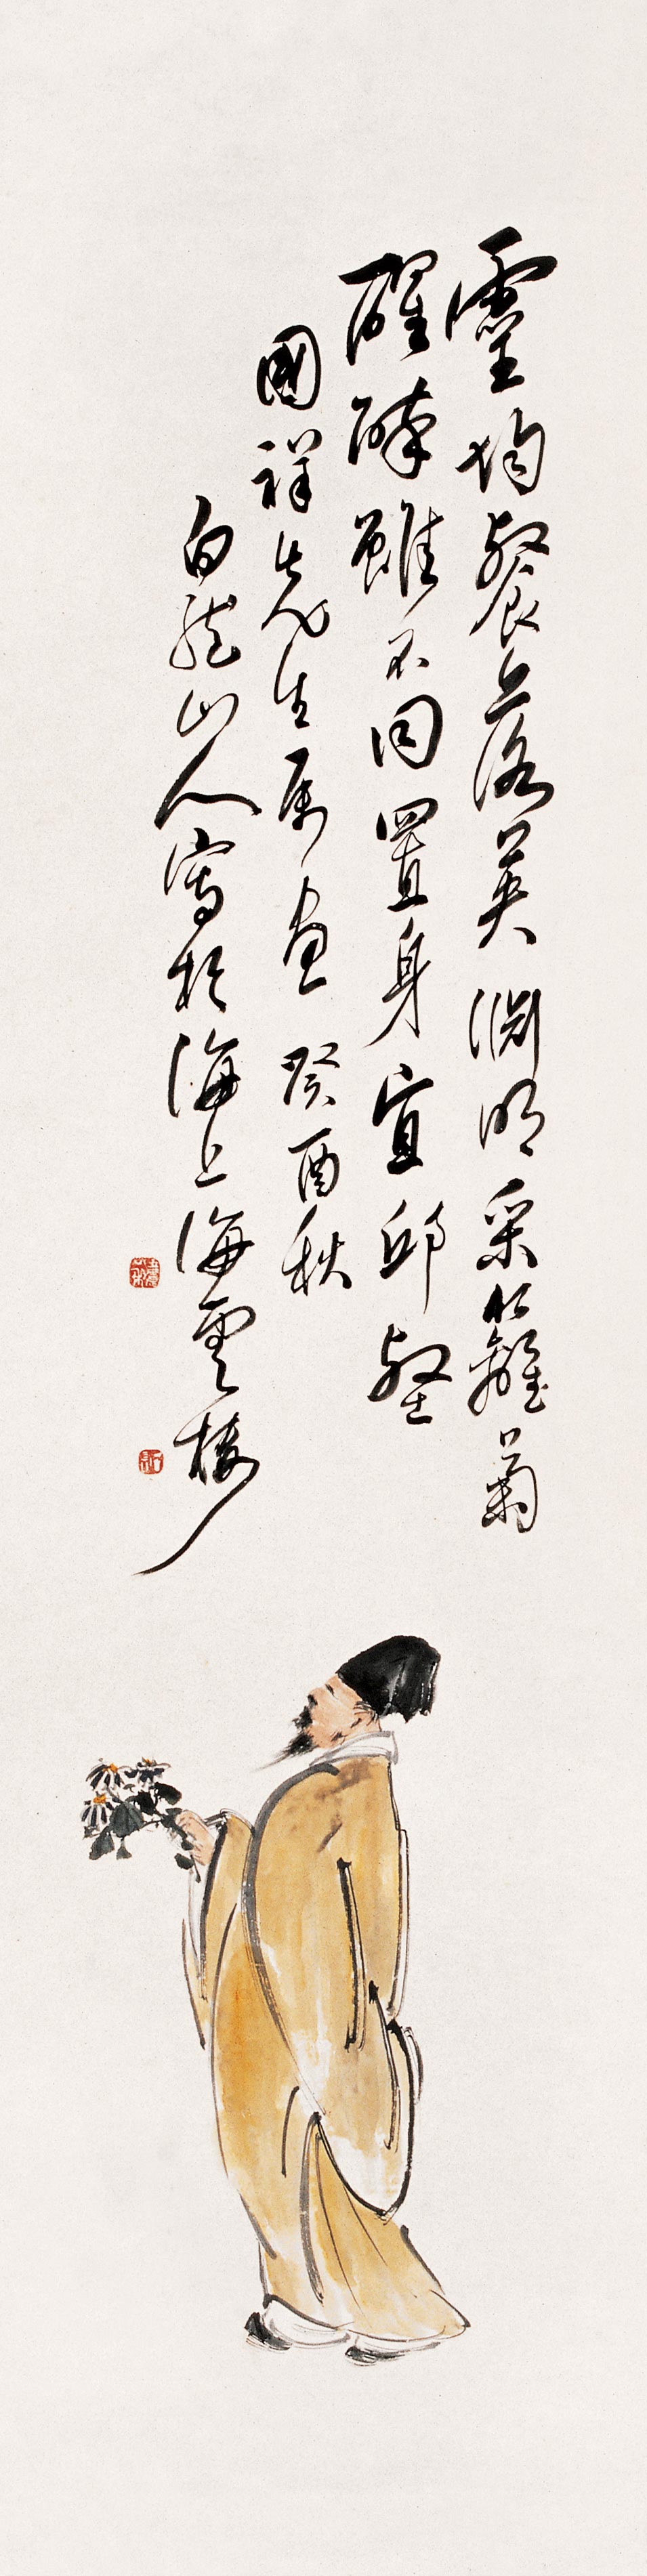 靈均餐落英淵明采籬菊
醒醉雖不同置身宜邱壑
國祥先生属畫癸酉秋
白龍山人寫於海上海雲樓